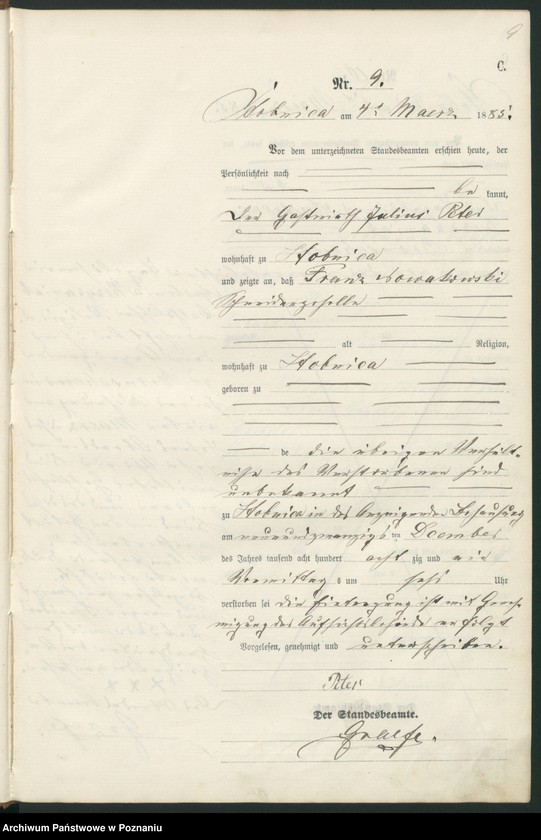 9
C.
Nr. 9.
Stobnica am 4t Maerz 1885.
Vor dem unterzeichneten Standesbeamten erschien heute, der
Persönlichkeit nach
be kannt,
Der Gastwirth Julius
wohnhaft zu Stobnica
und zeigte an, daß Franz Nowakowski
Schneidergeselle
alt Religion,
wohnhaft zu Stobnica
geboren zu
de die übrigen Verhält-
nisse des Verstorbenen sind
unbekannt
zu Stobnica in des Anzeigenden Behausung
am neunundzwanzigs ten Dcember
des Jahres tausend acht hundert acht zig und
Vormittag s um Uhr
verstorben sei die Eintragung ist mit Geneh-
migung des Aufsichtsbehörde erfolgt
Vorgelesen, genehmigt und unterschrieben.
Der Standesbeamte.
Graefe.
Archiwum Państwowe w Poznaniu